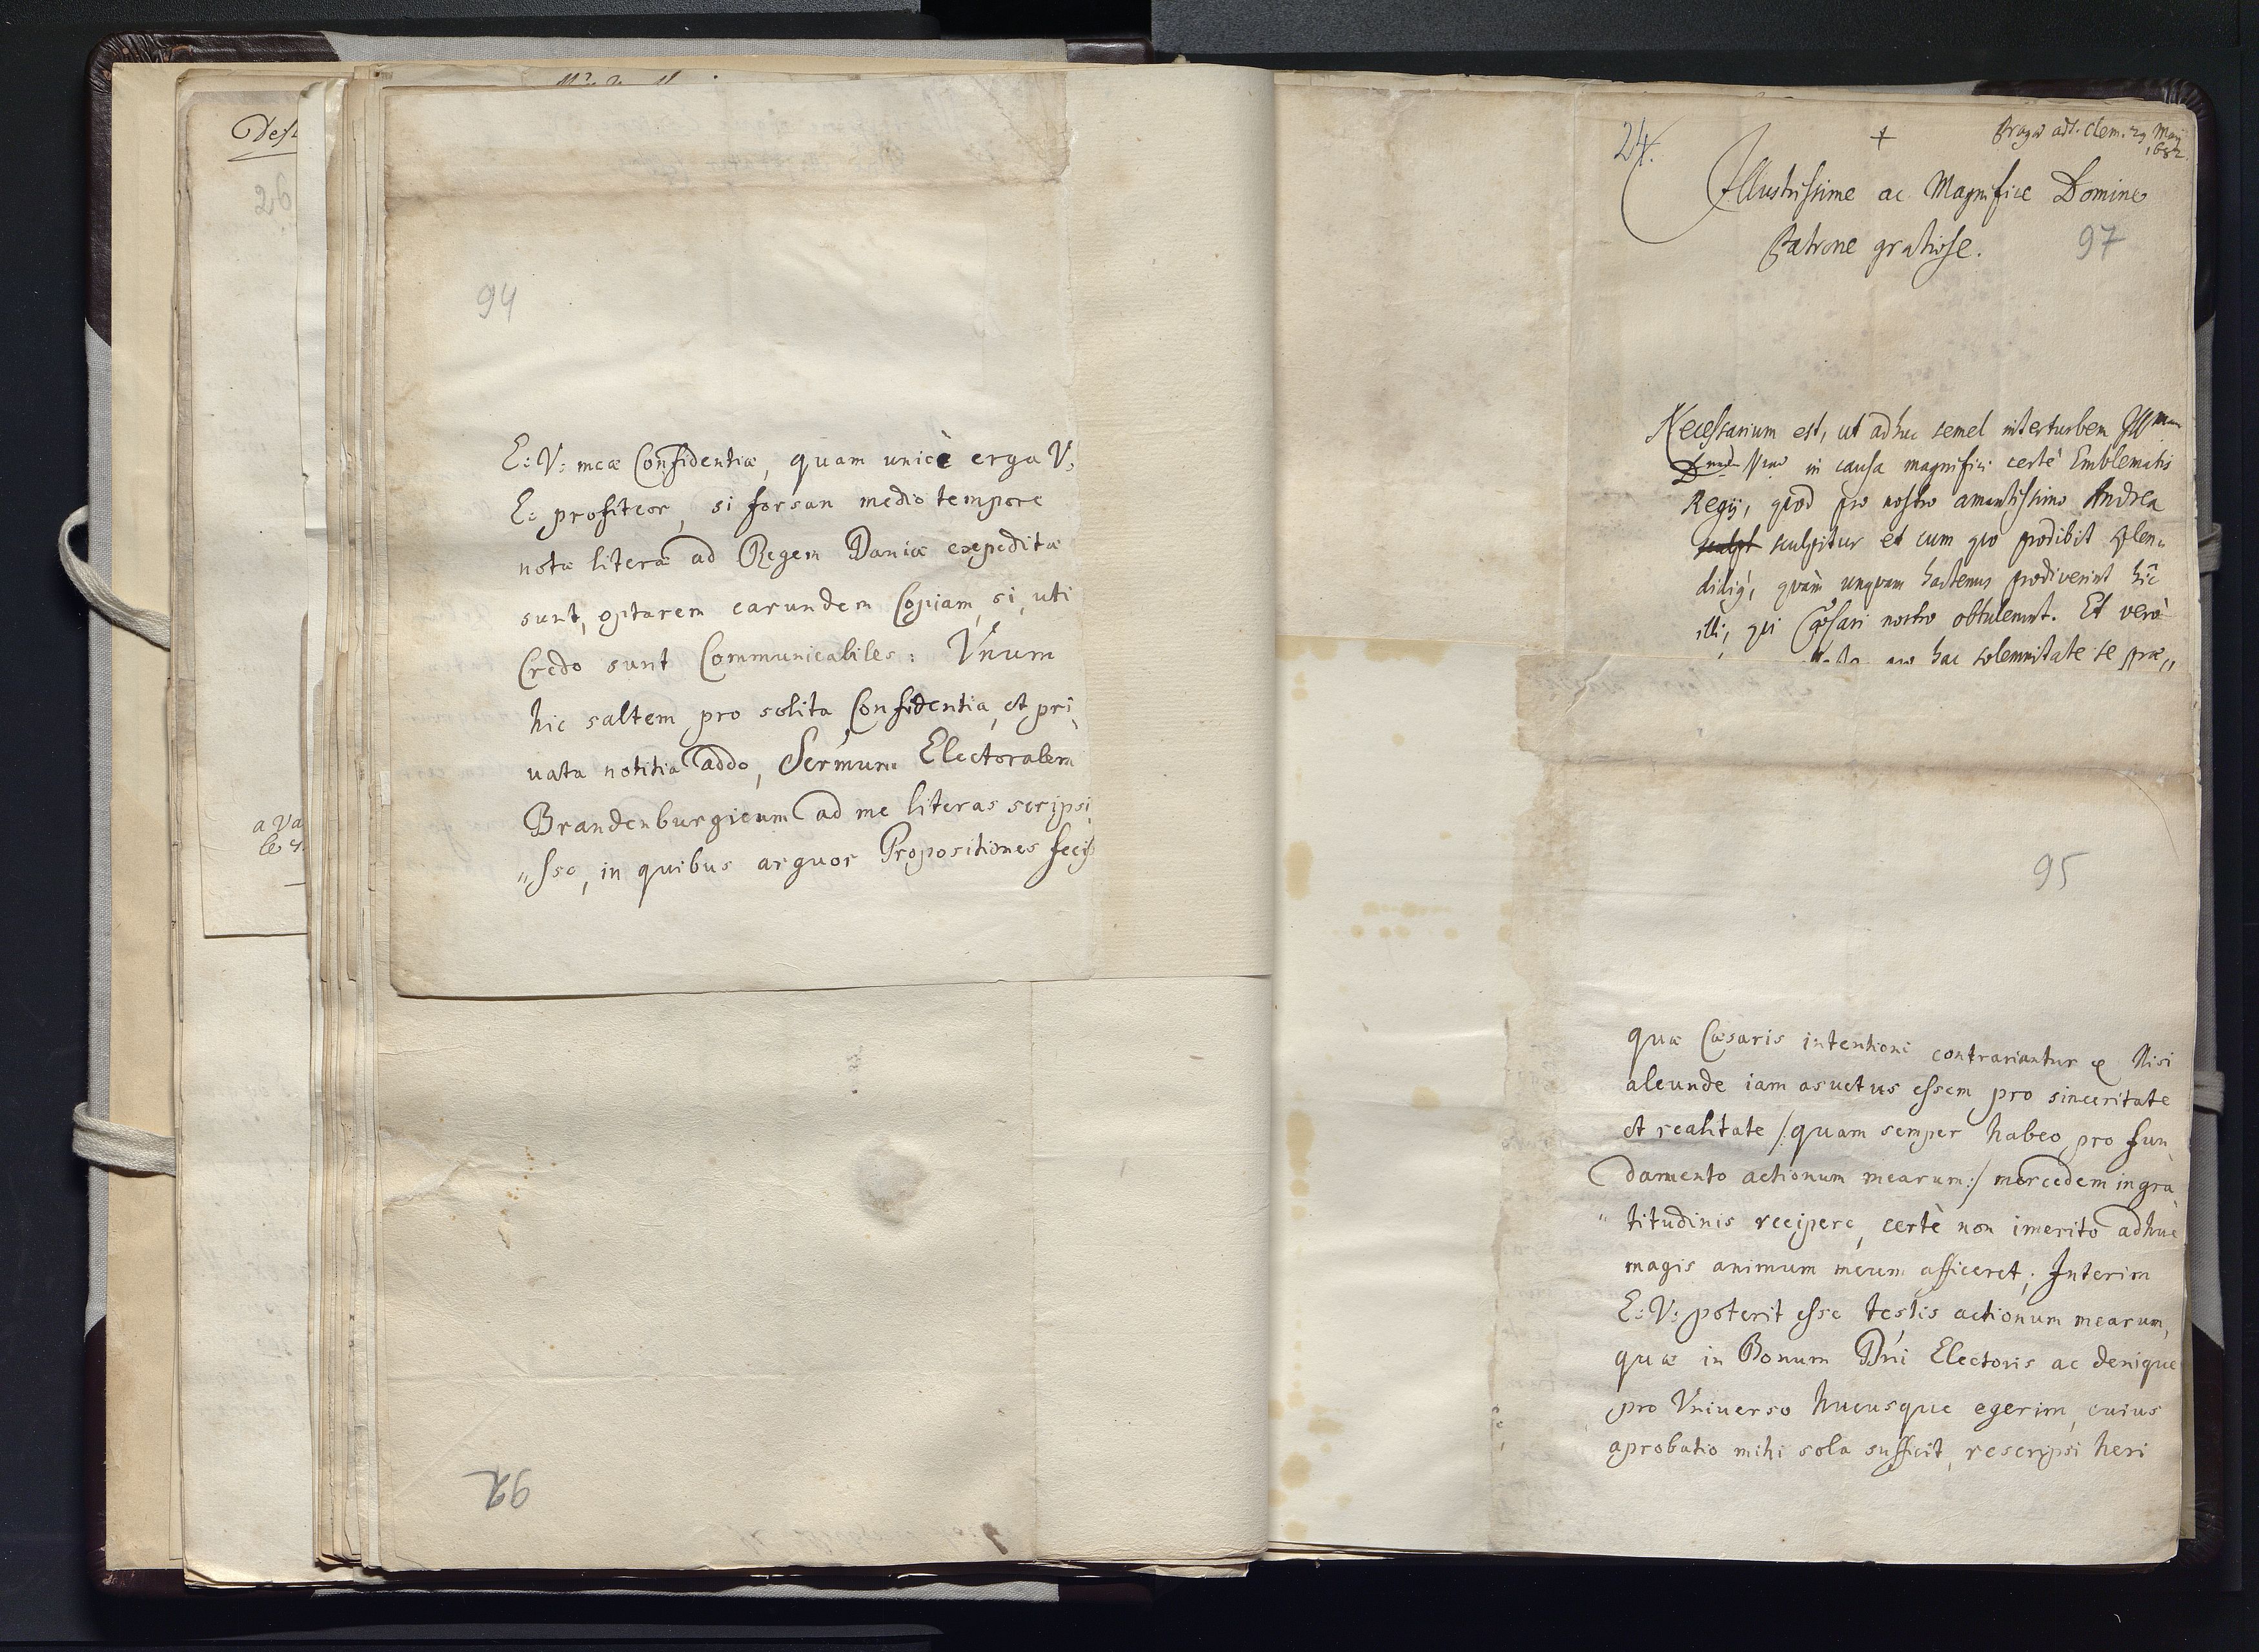 Des
26
a Va
94
E: V: meæ Confidentiæ, quam unicè erga V:
E: profiteor, si forsan medio tempore
notæ literæ ad Regem Daniæ expeditæ
sunt, optarem earundem Copiam, si, uti
Credo sunt Communicabiles: Vnum
hic saltem pro solita Confidentia, et pri,
uata notitia addo, Sermum Electoralem
Brandenburgicum ad me literas scripsi,
"sse, in quibus arguor Propositiones feciss
92
24.
+
Pragæ ad S. Clem. 29 Maij
1682.
Illustrissime ac Magnifice Domine
Patrone gratiose.
97
Necessarium est, ut adhuc semel interturbem Illmam
in causa magnifici certè Emblematis
Regij, quod pro nostro amantissimo Andrea
sculpt sculpitur et cum quo prodibit splen„
didiq, quàm unquam hactenus prodiverint hîc
illi, qui Cæsari nostro obtulerunt. Et verò
hac solemnitate se præ„
95
quæ Cæsaris intentioni contrariantur & Nisi
alcunde iam asuetus essem pro sinceritate
et realitate /: quam semper habeo pro fun,
damento actionum mearum :/ mercedem ingra,
" titudinis recipere, certè non imerito adhuc
magis animum meum afficeret; Interim
E: V: poterit esse testis actionum mearum,
quæ in Bonum Dni Electoris ac denique
pro Vniuerso hucusque egerim, cuius
aprobatio mihi sola sufficit, rescripsi heri